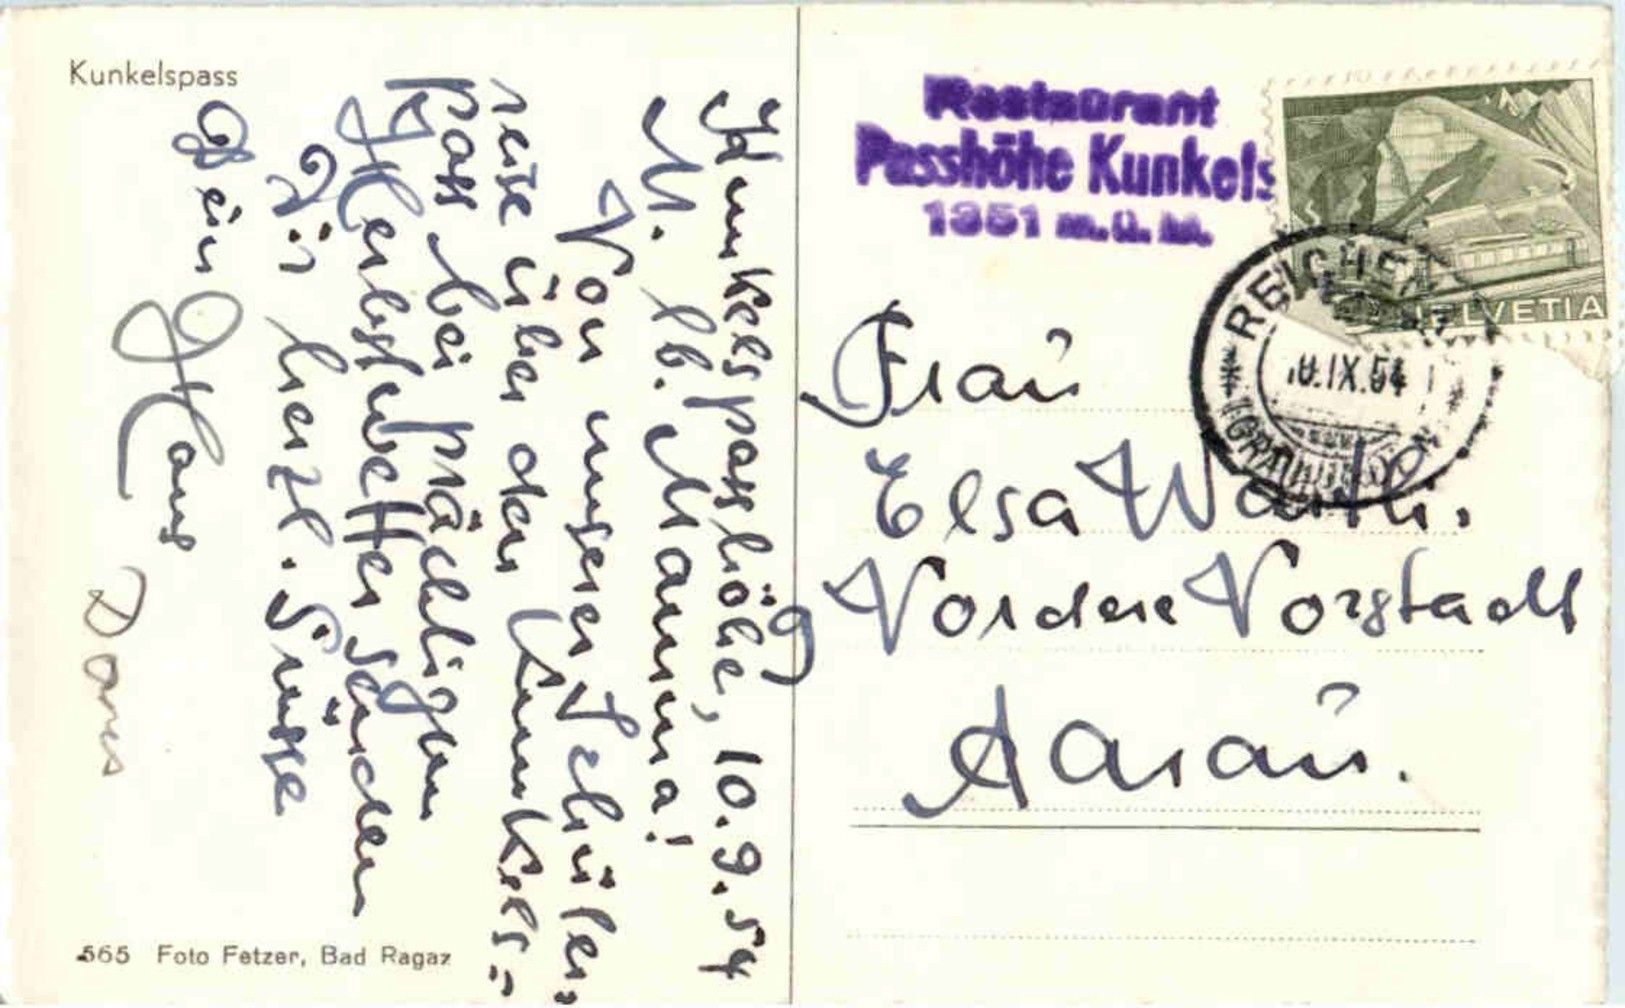 Kunkelspass
Kunkelspasshöhe, 10.9.54
M. lb. Mamma!
Von unserer Schüler-
reise über den Kunkels-
pass bei prächtigem
Herbstwetter senden
Dir herzl. Grüsse
Dein Hans
565 Foto Fetzer, Bad Ragaz
Restaurant
Passhöhe Kunkels
1351 m.ü.M.
HELVETIA
IX.54
Frau
Elsa
9 Vordere Vorstadt
Aarau.